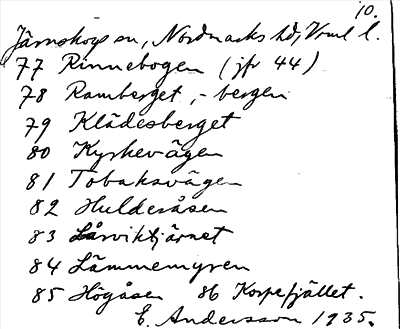 10.
Järnskogs sn, Nordmarks hd, Vrml l.
77 Rinnebogen (jfr 44)
78 Ramberget, -bergen
79 Klädesberget
80 Kyrkevägen
81 Tobaksvägen
82 Hulderåsen
83 Lårviktjärnet
84 Lämmemyren
85 Högåsen 86 Korpefjället.
E. Andersson 1935.